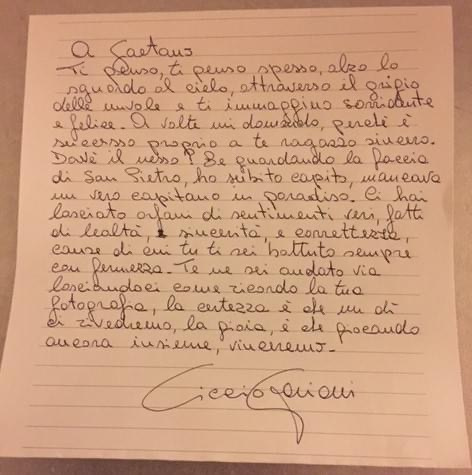 A Gaetano
Ti penso, ti penso spesso, alzo lo
sguardo al cielo, attraverso il grigio
delle nuvole e ti immagino sorridente
e felice. A volte mi domando, perché è
successo proprio a te ragazzo sincero.
Dov'è il nesso? Be guardando la faccia
di San Pietro, ho subito capito, mancava
un vero capitano in paradiso. Ci hai
lasciato orfani di sentimenti veri, fatti
di lealtà, sincerità, e correttezza,
cause di cui tu ti sei battuto sempre
con fermezza. Te ne sei andato via
lasciandoci come ricordo la tua
fotografia, la certezza è che un dì
ci rivedremo, la gioia, è che giocando
ancora insieme, vinceremo.
Ciccio